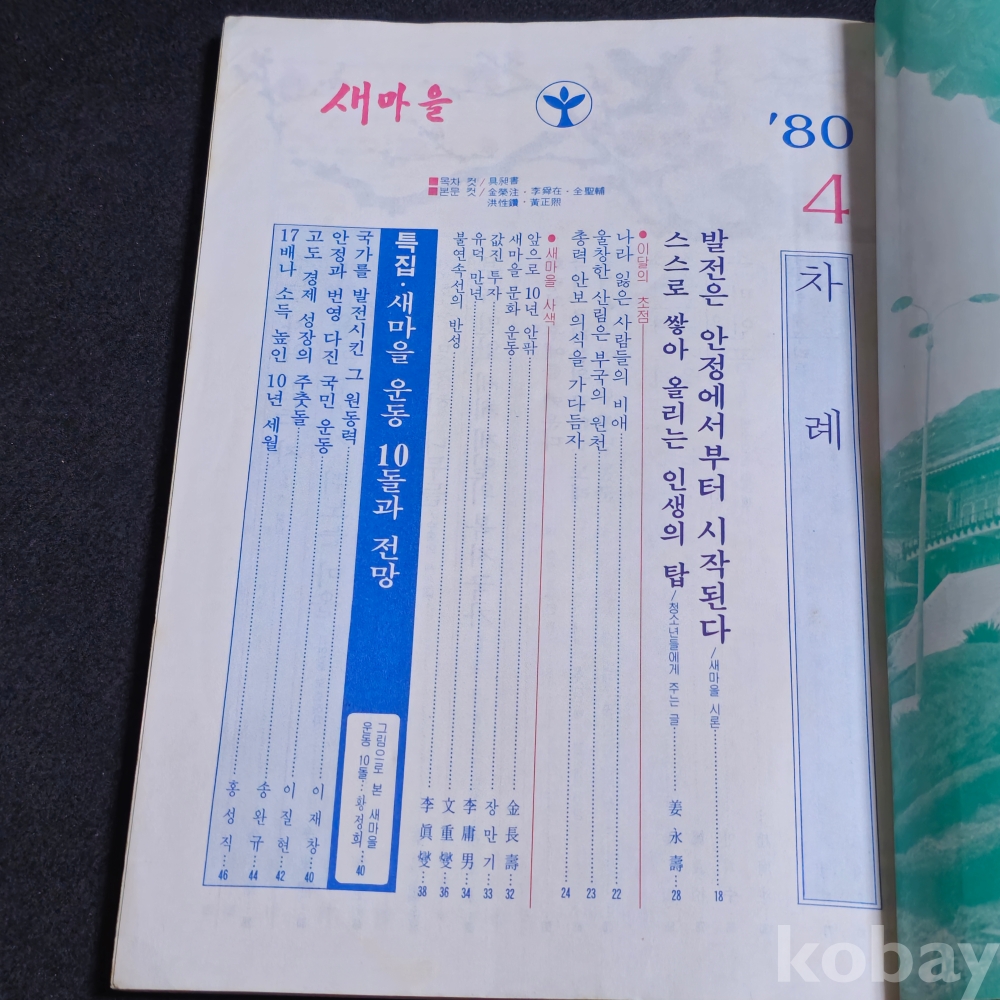 새마을
'80
4
차례
■목차 컷/具昶書
■본문 컷/金榮注·李舜在·全聖輔
洪性鑽·黃正熙
발전은 안정에서부터 시작된다/새마을 시론……18
스스로 쌓아 올리는 인생의 탑/청소년들에게 주는 글……姜永壽…28
●이달의 초점
나라 잃은 사람들의 비애……22
울창한 산림은 부국의 원천……23
총력 안보 의식을 가다듬자……24
●새마을 사색
앞으로 10년 안팎……金長壽…32
새마을 문화 운동……장만기…33
값진 투자……李庸男…34
유덕 만년……文重燮…36
불연속선의 반성……李眞燮…38
특집·새마을 운동 10돌과 전망
그림으로 본 새마을
운동 10돌…황정희…40
국가를 발전시킨 그 원동력……이재창…40
안정과 번영 다진 국민 운동……이질현…42
고도 경제 성장의 주춧돌……송완규…44
17배나 소득 높인 10년 세월……홍성직…46
kobay